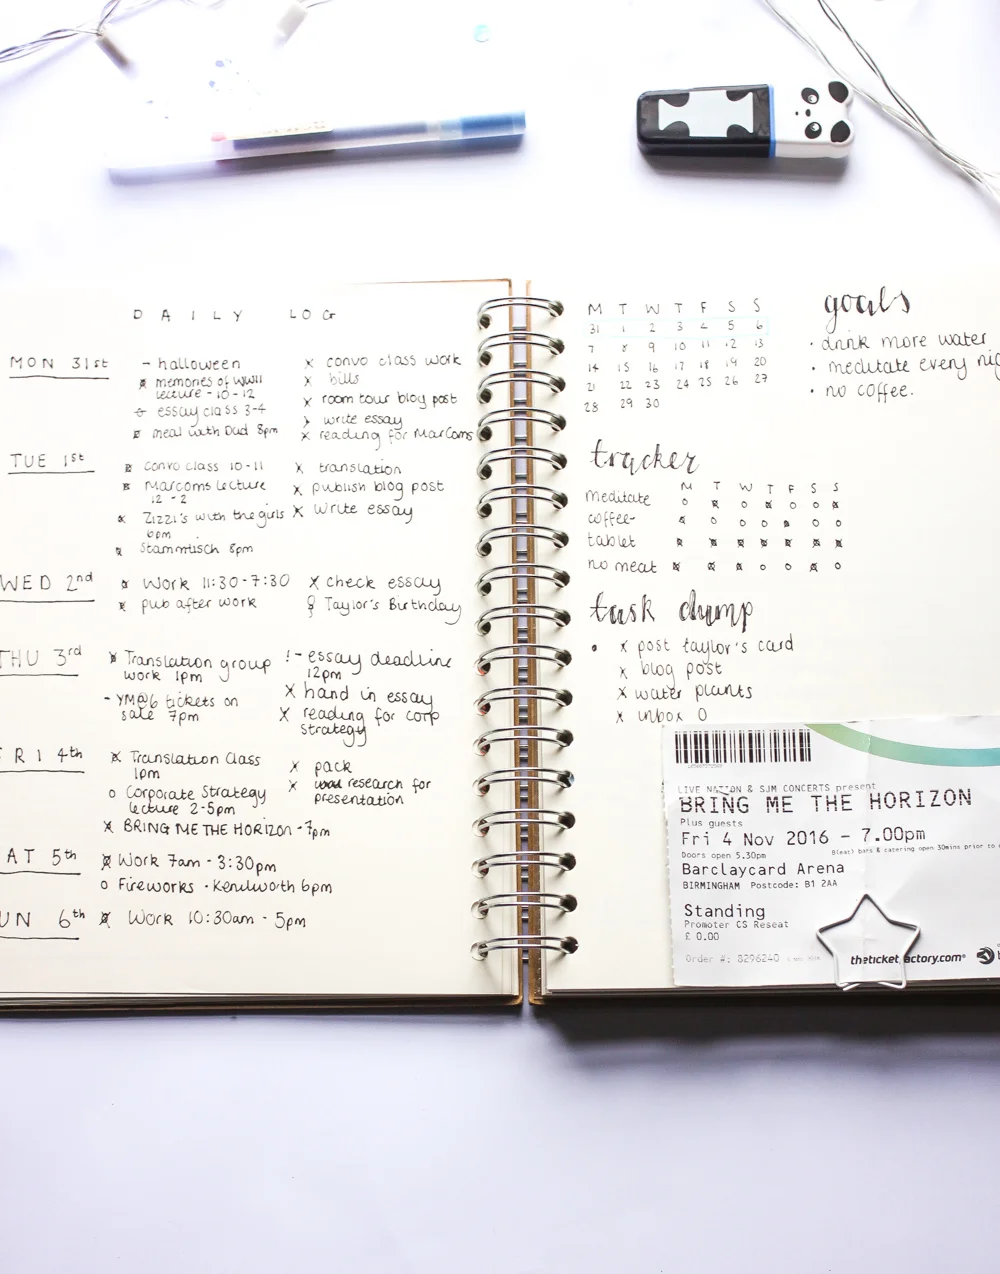 DAILY LOG
MON 31st
- halloween
memories of WWII
lecture - 10 - 12
essay class 3-4
meal with Dad 8pm
x convo class work
x bills
x room tour blog post
write essay
x reading for MarComs
TUE 1st
convo class 10-11
Marcoms Lecture
12 - 2
x Zizzi's with the girls
6pm
Stammtisch 8pm
x translation
x publish blog post
x write essay
WED 2nd
Work 11:30-7:30
x pub after work
x check essay
Taylor's Birthday
THU 3rd
Translation group
work 1pm
- YM@6 tickets on
sale 7pm
! - essay deadline
12pm
x hand in essay
x reading for corp
strategy
FRI 4th
x Translation Class
1pm
o Corporate Strategy
Lecture 2-5pm
x BRING ME THE HORIZON - 7pm
x pack
x research for
presentation
SAT 5th
Work 7am - 3:30pm
o Fireworks - Kenilworth 6pm
SUN 6th
Work 10:30am - 5pm
M T W T F S S
31 1 2 3 4 5 6
7 8 9 10 11 12 13
14 15 16 17 18 19 20
21 22 23 24 25 26 27
28 29 30
goals
· drink more water
· meditate every
· no coffee.
tracker
M T W T F S S
meditate
coffee
tablet
no meat
task dump
• x post taylor's card
x blog post
x water plants
x inbox 0
LIVE NATION & SJM CONCERTS present
BRING ME THE HORIZON
Plus guests
Fri 4 Nov 2016 - 7.00pm
Doors open 5.30pm
B(eat) bars & catering open 30mins prior to
Barclaycard Arena
BIRMINGHAM Postcode: B1 2AA
Standing
Promoter CS Reseat
£ 0.00
Order #: 8296240
theticketfactory.com